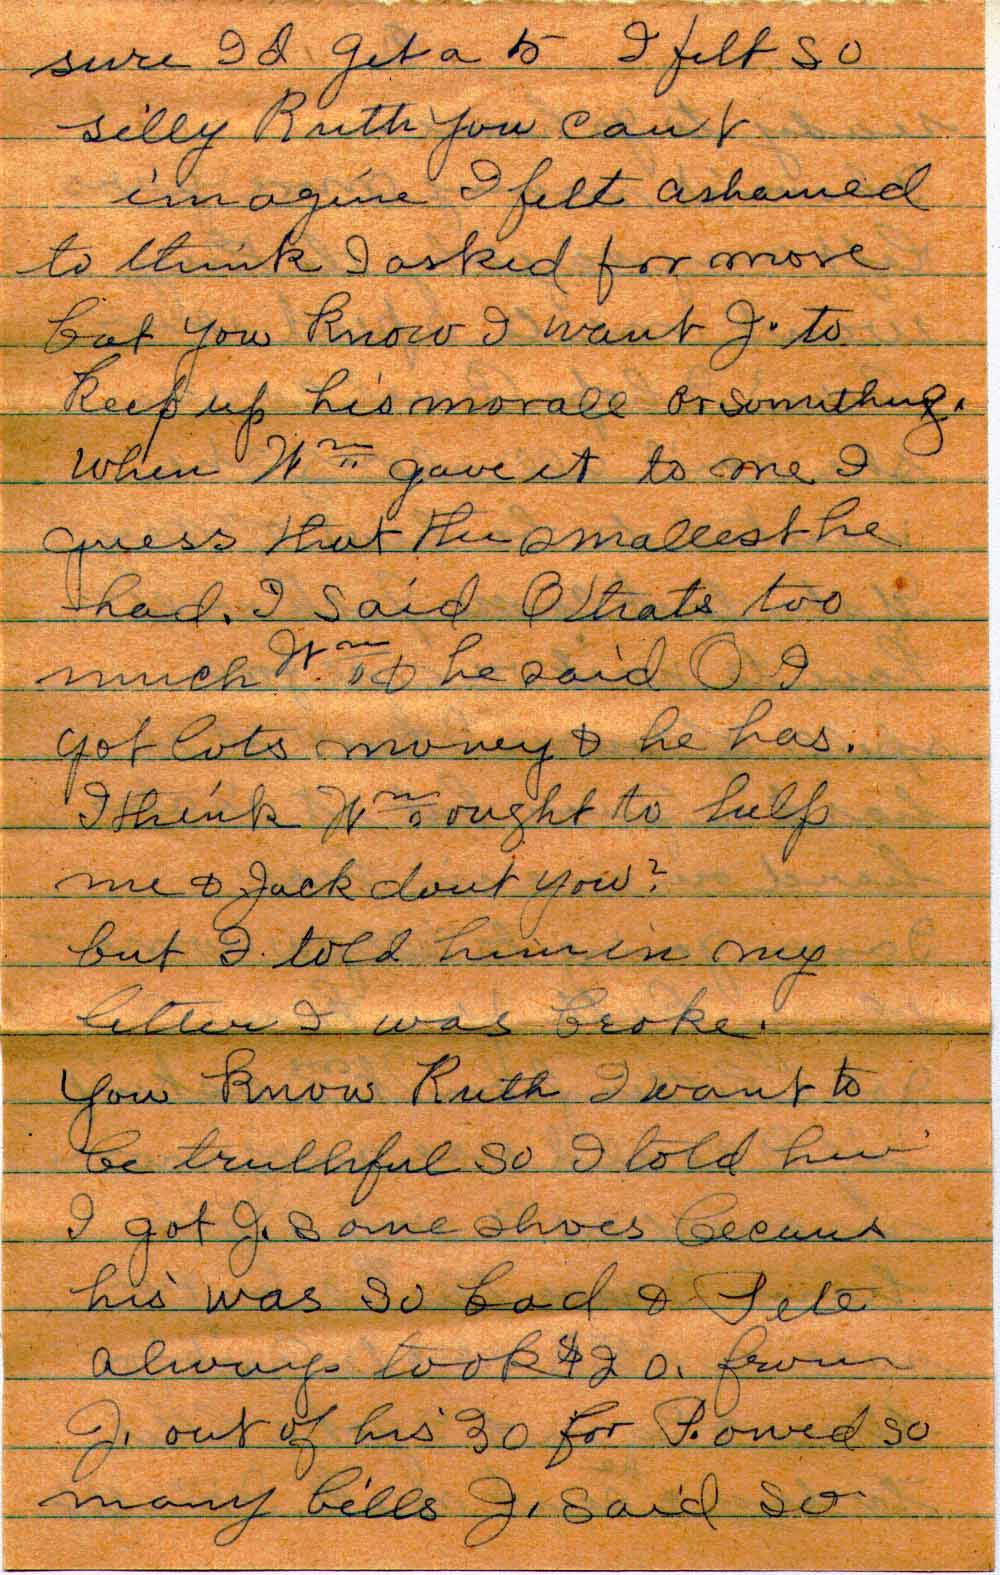 sure I'd get a 5 I felt so
silly Ruth you can't
imagine I felt ashamed
to think I asked for more
but you know I want J. to
keep up his morale or somuthing.
when Wm gave it to me I
guess that the smallest he
had. I said O thats too
much Wm & he said O I
got lots money & he has.
I think Wm ought to help
me & Jack dont you?
but I told him in my
letter I was broke.
You know Ruth I want to
be truthful so I told him
I got J. some shoes becaus
his was so bad & Pete
always took $20. from
J. out of his 30 for P. owed so
many bills J. said so